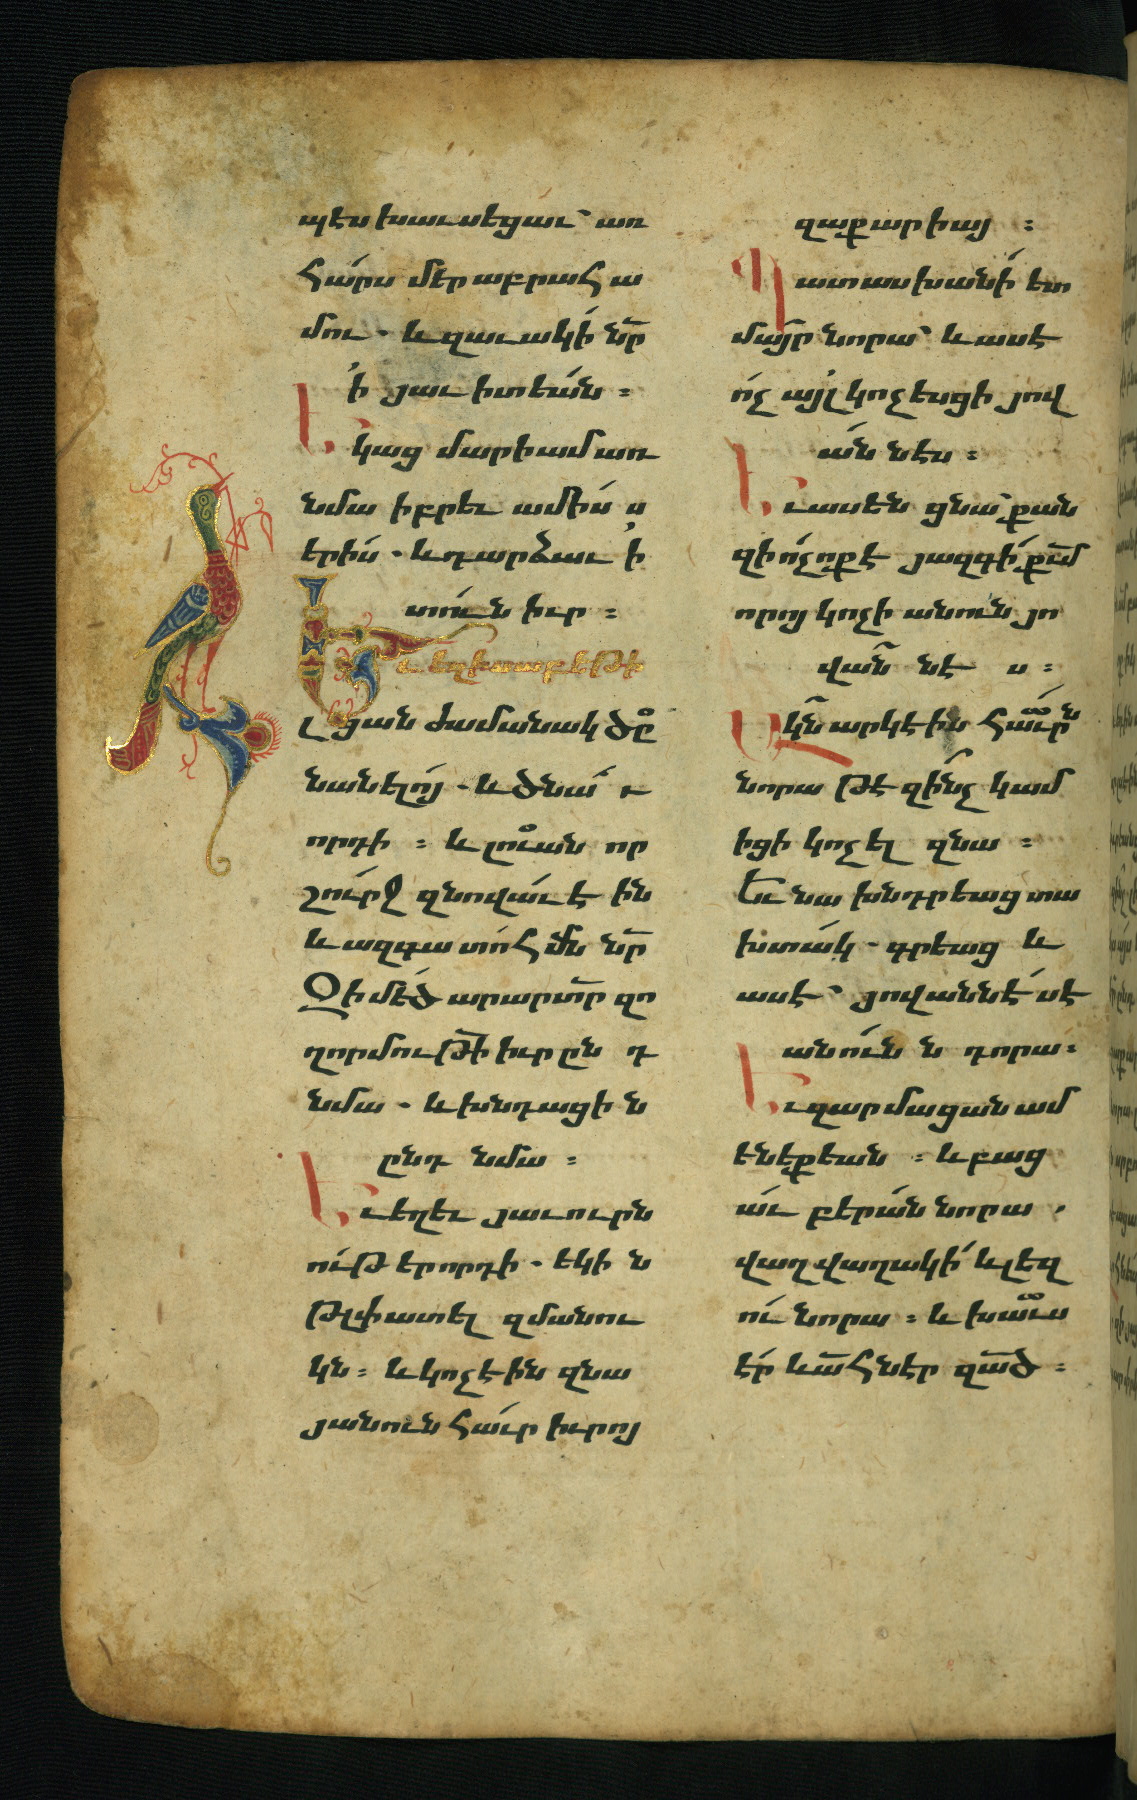 պէս խաւսեցաւ՝ առ
հարս մեր աբրահա
մու. և զաւակի նր
՚ի յաւիտեան :
Ե կաց մարիամ առ
նմա իբրեւ ամիս
երիս. և դարձաւ ՚ի
տուն իւր :
Եւ եղիսաբեթի
լցան ժամանակ ծը
նանելոյ. և ծնաւ
որդի : և լուան որ
շուրջ զնովաւ էին
և ազգատոհմն նր
Զի մեծ արար տր զո
ղորմութի իւր ընդ
նմա. և խնդացին
ընդ նմա :
Եւ եղեւ յաւուրն
ութերորդի. եկին
թլփատել զմանու
կն : և կոչէին զնա
յանուն հաւր իւրոյ
զաքարիայ :
Պատասխանի ետ
մայր նորա՝ և ասէ
ոչ այլ կոչեսցի յով
աննէս :
Եւ ասեն ցնա՝ քան
զի ոչ ոք է յազգի քմ
որոյ կոչի անուն յո
վաննէս :
Ակն արկէին հաւրն
նորա թէ զինչ կամ
իցի կոչել զնա :
Եւ նա խնդրեաց տա
խտակ. գրեաց և
ասէ՝ յովաննէս է
անուն ն դորա :
Եւ զարմացան ամ
ենեքեան : և բաց
աւ բերան նորա.
վաղվաղակի և լեզ
ու նորա : և խաւս
էր և աւհնէր զած :